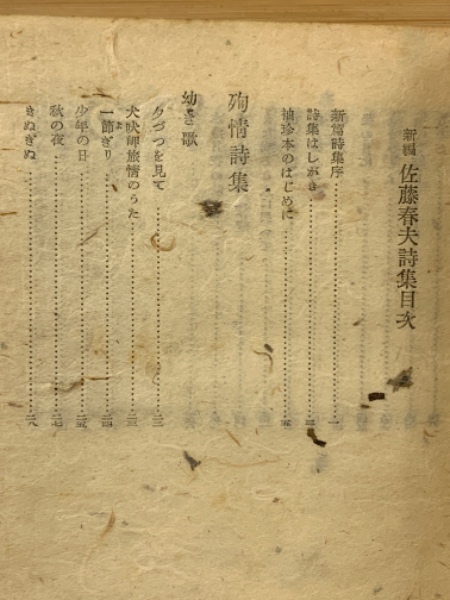 新編 佐藤春夫詩集目次
新篇詩集序…………一
詩集はしがき…………三
袖珍本のはじめに…………五
殉情詩集
幼き歌
夕づつを見て…………二三
犬吠岬旅情のうた…………二三
一節ぎり…………二四
少年の日…………二五
秋の夜…………二七
きぬぎぬ…………二八